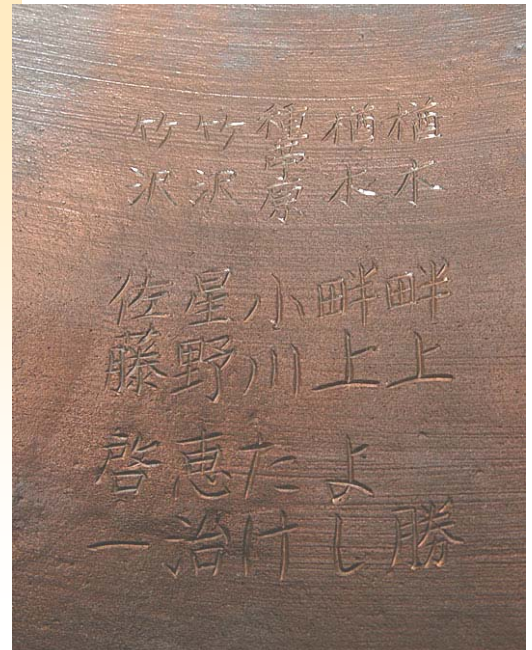 楢木 畔上 勝
楢木 畔上 よし
小川 たけ
竹沢 星野 恵治
竹沢 佐藤 啓一